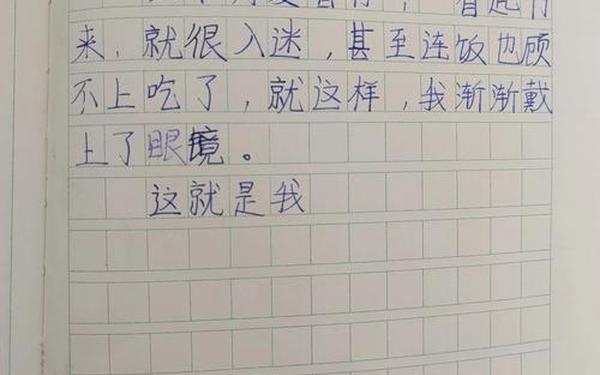 来，就很入迷，甚至连饭也顾
不上吃了，就这样，我渐渐戴
上了眼镜。
这就是我